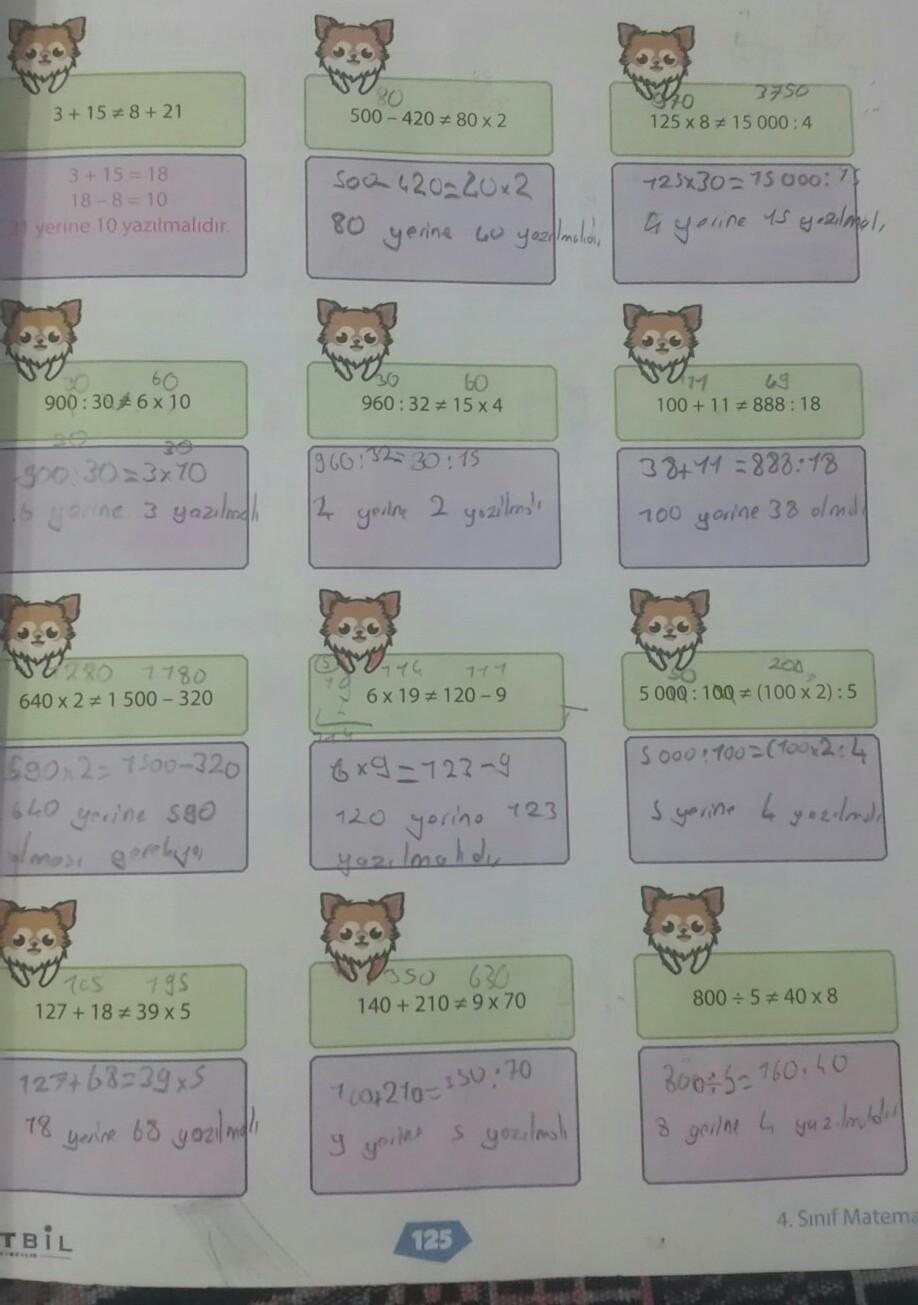 3 + 15 ≠ 8 + 21
3 + 15 = 18
18 – 8 = 10
21 yerine 10 yazılmalıdır.
80
500 – 420 ≠ 80 x 2
500-420=40x2
80 yerine 40 yazılmalıdı,
3750
125 x 8 ≠ 15 000 : 4
125x30=15000:
4 yerine 15 yazılmalı,
30 60
900 : 30 ≠ 6 x 10
30
900:30=3x10
6 yerine 3 yazılmalı
30 60
960 : 32 ≠ 15 x 4
960:32=30:15
4 yerine 2 yazılmalı
111 49
100 + 11 ≠ 888 : 18
38+11=888:18
100 yerine 38 olmalı
1280 1180
640 x 2 ≠ 1 500 – 320
590x2=1500-320
640 yerine 590
olması gerekiyo,
5 114 111
19
6 x 19 ≠ 120 – 9
114
6x9=123-9
120 yerine 123
yazılmalıdı,
50 200
5 000 : 100 ≠ (100 x 2) : 5
5000:100=(100x2:4
5 yerine 4 yazılmalı
195
127 + 18 ≠ 39 x 5
127+68=39x5
18 yerine 68 yazılmalı
350 630
140 + 210 ≠ 9 x 70
140+210=350:70
9 yerine 5 yazılmalı
800 ÷ 5 ≠ 40 x 8
800÷5=160:40
8 yerine 4 yazılmalıdır
TBİL
125
4. Sınıf Matema